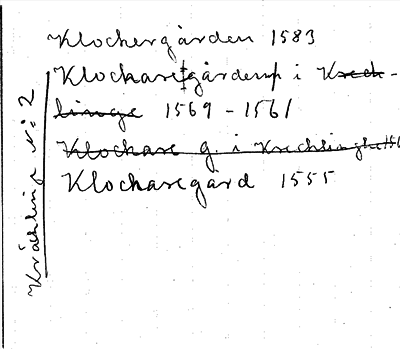 Klockergården 1583
Klockaregårdenn i Kreck-
linge 1569 - 1561
Klockare g. i Krecklinghe 156
Klockaregård 1555
Kräcklinge N:o 2